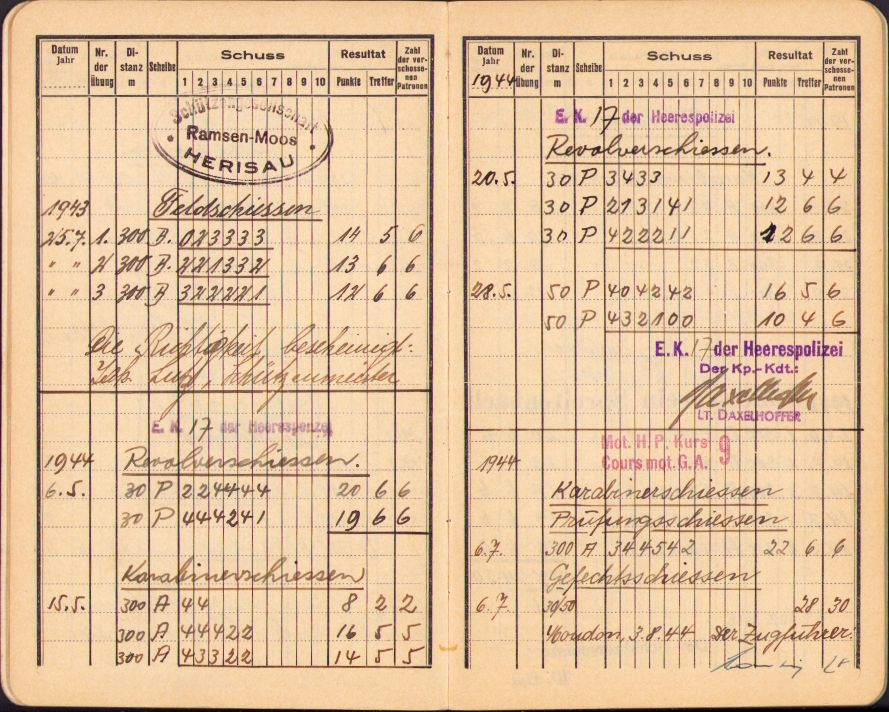 Datum Jahr Nr. der Übung Di- stanz m Scheibe Schuss 1 2 3 4 5 6 7 8 9 10 Resultat Punkte Treffer Zahl der ver- schosse- nen Patronen
Schützengesellschaft
Ramsen-Moos
HERISAU
1943 Feldschiessen
25.7. 1. 300 B. 0 2 3 3 3 3 14 5 6
" " 2 300 B. 2 2 1 3 3 2 13 6 6
" " 3 300 B 3 2 2 2 2 1 12 6 6
Die Richtigkeit bescheinigt:
Schützenmeister
E. K. 17 der Heerespolizei
1944 Revolverschiessen.
6.5. 30 P 2 2 4 4 4 4 20 6 6
30 P 4 4 4 2 4 1 19 6 6
Karabinerschiessen
15.5. 300 A 4 4 8 2 2
300 A 4 4 4 2 2 16 5 5
300 A 4 3 3 2 2 14 5 5
Datum Jahr 1944 Nr. der Übung Di- stanz m Scheibe Schuss 1 2 3 4 5 6 7 8 9 10 Resultat Punkte Treffer Zahl der ver- schosse- nen Patronen
E. K. 17 der Heerespolizei
Revolverschiessen.
20.5. 30 P 3 4 3 3 13 4 4
30 P 2 1 3 1 4 1 12 6 6
30 P 4 2 2 2 1 1 12 6 6
28.5. 50 P 4 0 4 2 4 2 16 5 6
50 P 4 3 2 1 0 0 10 4 6
E. K. 17 der Heerespolizei
Der Kp.-Kdt.:
Daxelhoffer
LT. DAXELHOFFER
Mot. H. P. Kurs 9
1944 Cours mot. G. A.
Karabinerschiessen
Prüfungsschiessen
6.7. 300 A 3 4 4 5 4 2 22 6 6
Gefechtsschiessen
6.7. 30/50 28 30
Moudon, 3.8.44 Der Zugführer:
Lt